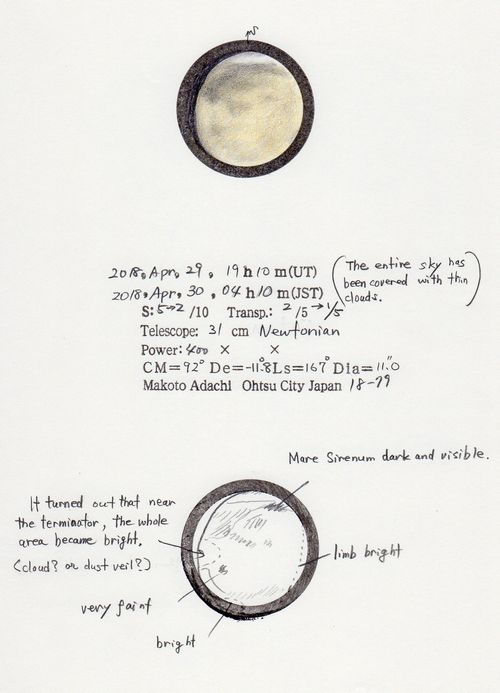 S
2018, Apr, 29, 19 h 10 m(UT)
(The entire sky has
been covered with thin
clouds.)
2018, Apr, 30, 04 h 10 m(JST)
S: 5→2 /10 Transp.: 2 /5 → 1/5
Telescope: 31 cm Newtonian
Power: 400 × ×
CM=92° De=-11.8° Ls=167° Dia=11.0"
Makoto Adachi Ohtsu City Japan 18-79
Mare Sirenum dark and visible.
It turned out that near
the terminator, the whole
area became bright.
(cloud? or dust veil?)
limb bright
very faint
bright